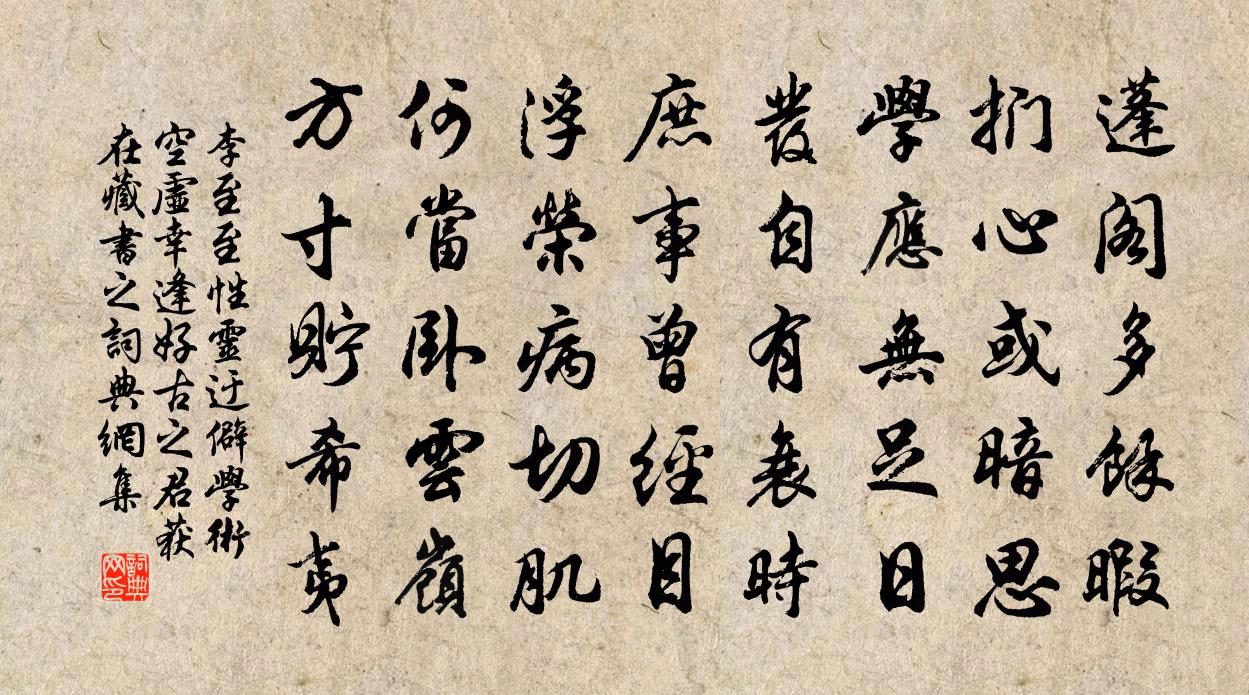 蓬閣多餘暇
捫心或暗思
學應無足日
發自有衰時
庶事曾經目
浮榮病切肌
何當卧雲嶺
方寸貯希夷
李至至性靈迂僻學術
空虛幸逢好古之君获
在藏書之詞典網集
詞典網印